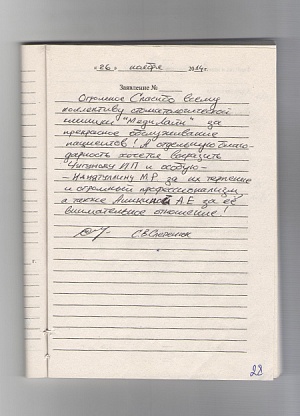 «26» ноября 2014г.
Заявление №
Огромное Спасибо всему
коллективу стоматологической
клиники "МедиЛайн" за
прекрасное обслуживание
пациентов! А отдельную благо-
дарность хочется выразить
и особую
М.Р. за их терпение
и огромный профессионализм,
а также А.Е за её
внимательное отношение!
28